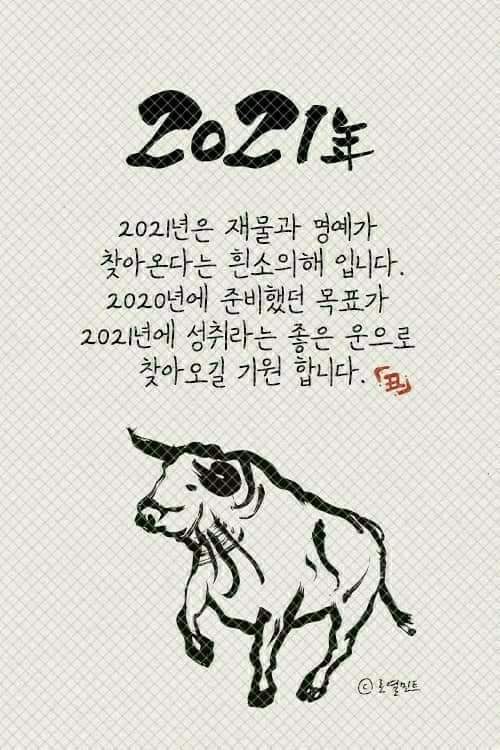 2021年
2021년은 재물과 명예가
찾아온다는 흰소의해 입니다.
2020년에 준비했던 목표가
2021년에 성취라는 좋은 운으로
찾아오길 기원 합니다.
「丑」
ⓒ 로열민트